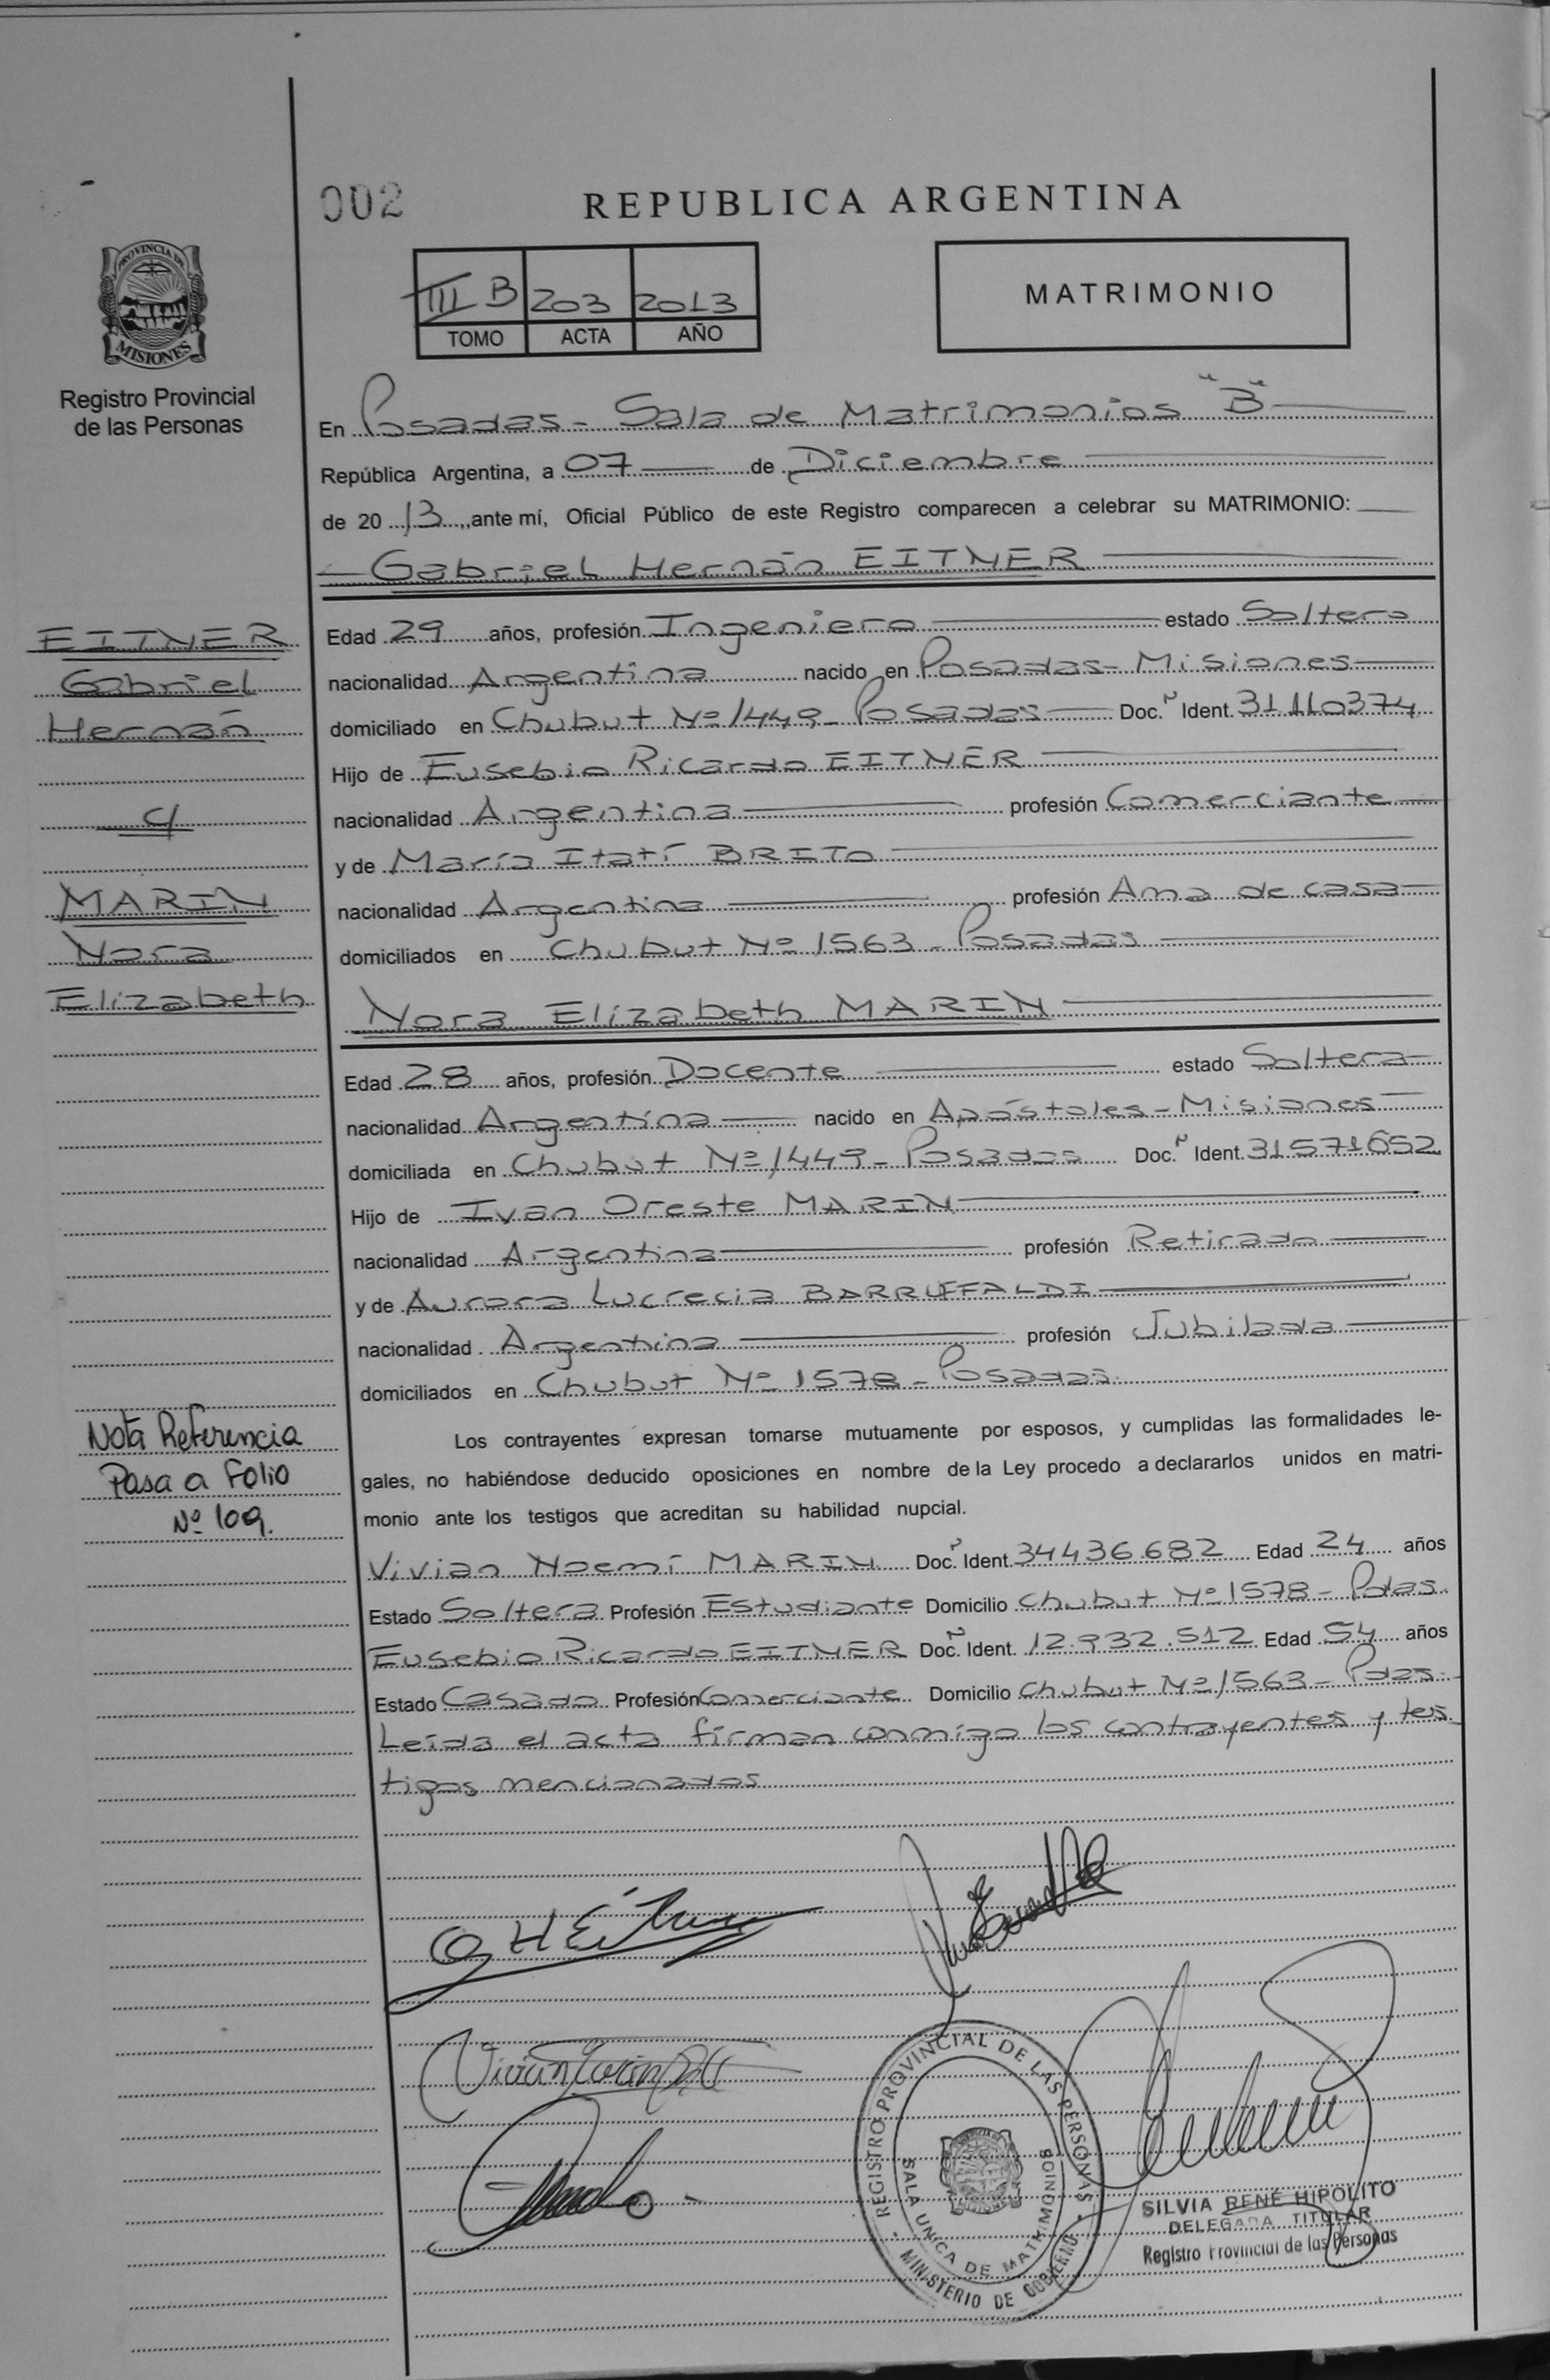 002
REPUBLICA ARGENTINA
PROVINCIA DE
MISIONES
Registro Provincial
de las Personas
III B 203 2013
TOMO ACTA AÑO
MATRIMONIO
En Posadas - Sala de Matrimonios "B"
República Argentina, a 07 de Diciembre
de 20 13, ante mí, Oficial Público de este Registro comparecen a celebrar su MATRIMONIO:
Gabriel Hernán EITNER
EITNER
Gabriel
Hernán
c/
MARIN
Nora
Elizabeth
Edad 29 años, profesión Ingeniero estado Soltero
nacionalidad Argentina nacido en Posadas - Misiones
domiciliado en Chubut Nº 1449 - Posadas Doc. Ident. 31110374
Hijo de Eusebio Ricardo EITNER
nacionalidad Argentina profesión Comerciante
y de María Itatí BRITO
nacionalidad Argentina profesión Ama de casa
domiciliados en Chubut Nº 1563 - Posadas
Nora Elizabeth MARIN
Edad 28 años, profesión Docente estado Soltera
nacionalidad Argentina nacido en Apóstoles - Misiones
domiciliada en Chubut Nº 1449 - Posadas Doc. Ident. 31571652
Hijo de Ivan Oreste MARIN
nacionalidad Argentina profesión Retirado
y de Aurora Lucrecia BARRUFFALDI
nacionalidad Argentina profesión Jubilada
domiciliados en Chubut Nº 1578 - Posadas
Nota Referencia
Pasa a Folio
Nº 109.
Los contrayentes expresan tomarse mutuamente por esposos, y cumplidas las formalidades le-
gales, no habiéndose deducido oposiciones en nombre de la Ley procedo a declararlos unidos en matri-
monio ante los testigos que acreditan su habilidad nupcial.
Vivian Noemí MARIN Doc. Ident. 34436682 Edad 24 años
Estado Soltera Profesión Estudiante Domicilio Chubut Nº 1578 - Pdas.
Eusebio Ricardo EITNER Doc. Ident. 12.932.512 Edad 54 años
Estado Casado Profesión Comerciante Domicilio Chubut Nº 1563 - Pdas.
Leída el acta firman conmigo los contrayentes y tes
tigos mencionados
REGISTRO PROVINCIAL DE LAS PERSONAS
SALA UNICA DE MATRIMONIOS
MINISTERIO DE GOBIERNO
SILVIA RENÉ HIPOLITO
DELEGADA TITULAR
Registro Provincial de las Personas